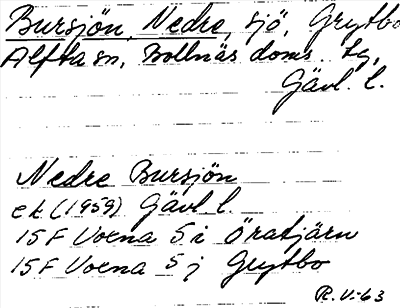 Bursjön, Nedre, sjö, Grytbo
Alfta sn, Bollnäs doms. tg,
Gävl. l.
Nedre Bursjön
ek (1959) Gävl l.
15 F Voxna 5 i Öratjärn
15 F Voxna 5 j Grytbo
R. V-63